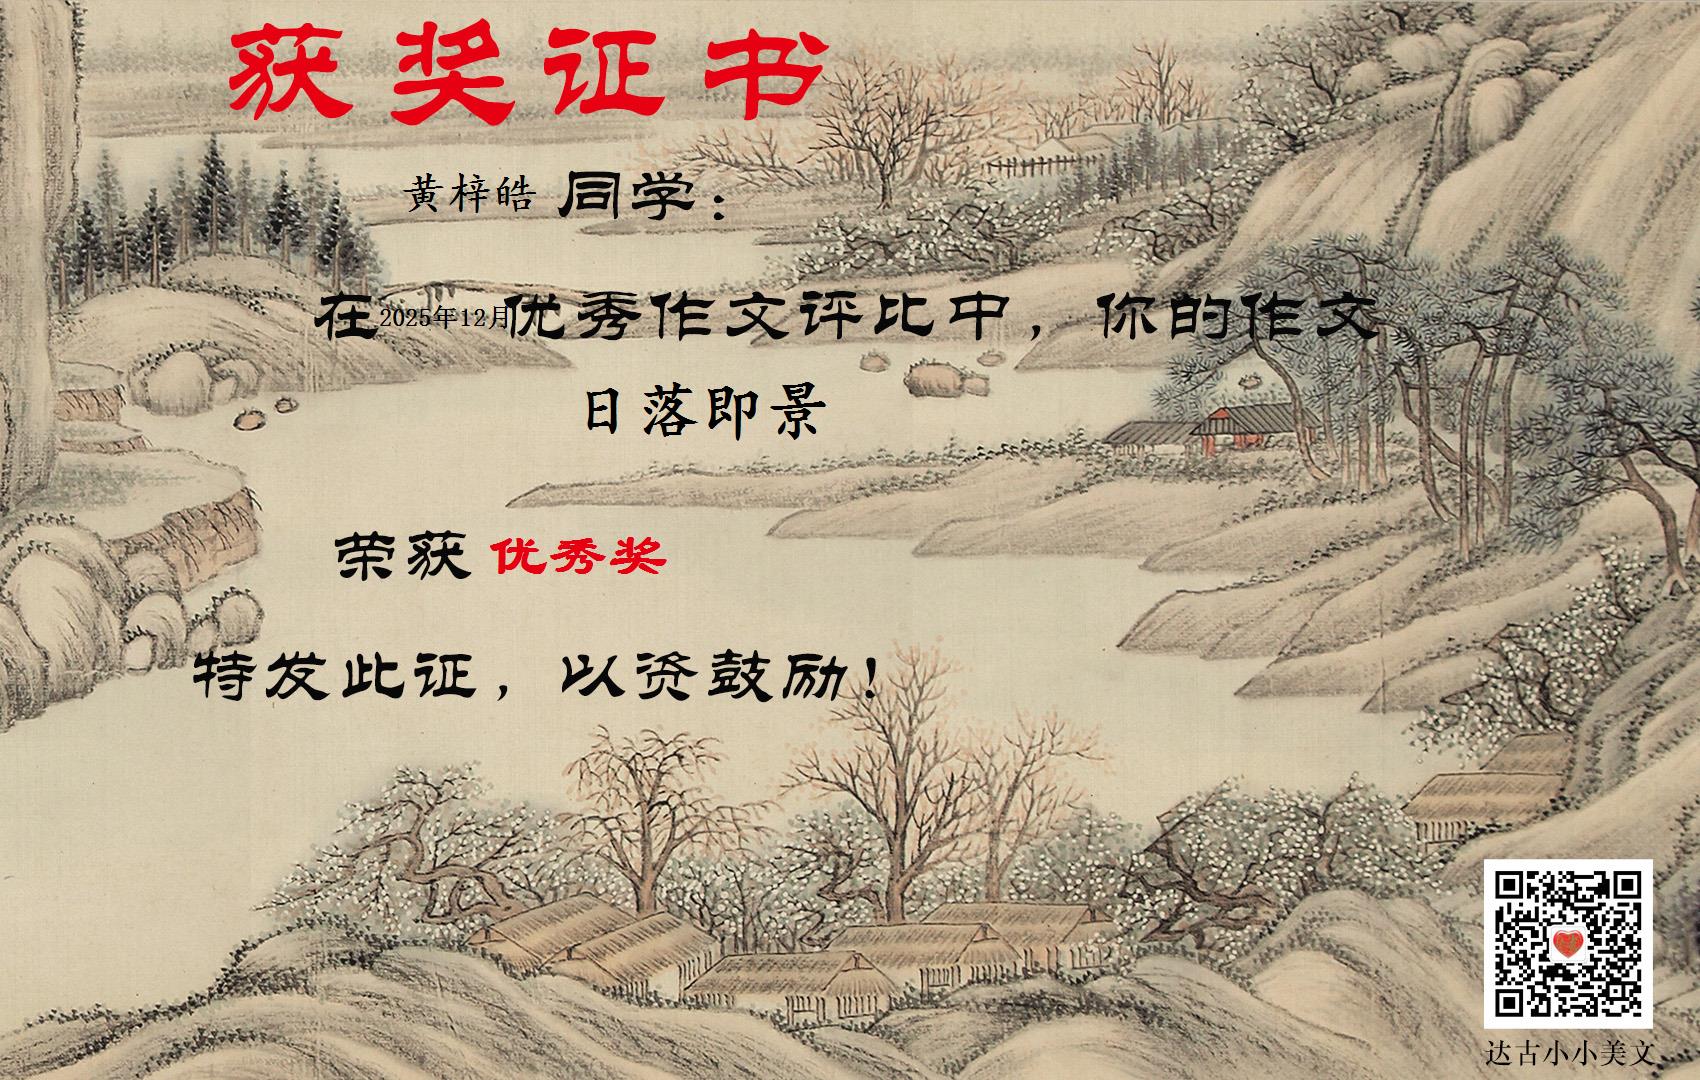 获奖证书
黄梓皓 同学：
在2025年12月优秀作文评比中，你的作文
日落即景
荣获 优秀奖
特发此证，以资鼓励！
达古小小美文